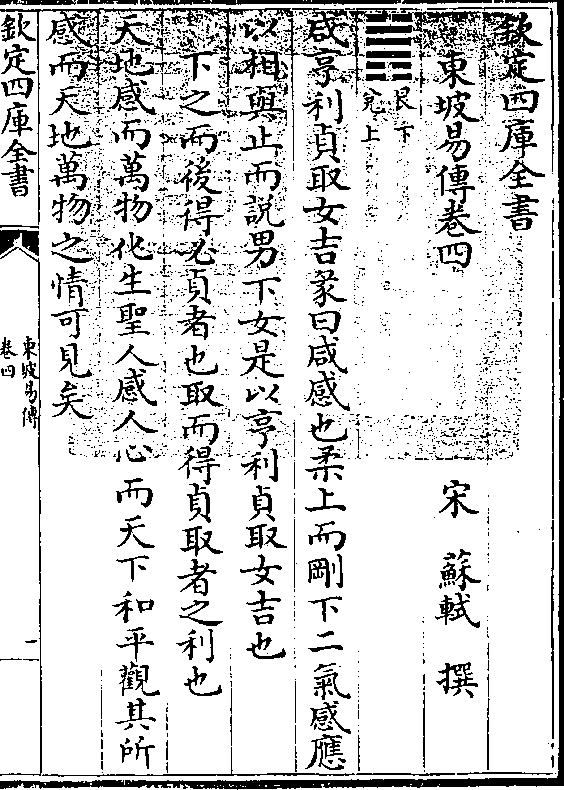 欽定四庫全書
東坡易傳卷四
宋 蘇軾 撰
艮下
兌上
咸亨利貞取女吉彖曰咸感也柔上而剛下二氣感應
以相與止而說男下女是以亨利貞取女吉也
下之而後得必貞者也取而得貞取者之利也
天地感而萬物化生聖人感人心而天下和平觀其所
感而天地萬物之情可見矣
欽定四庫全書
東坡易傳
卷四
一